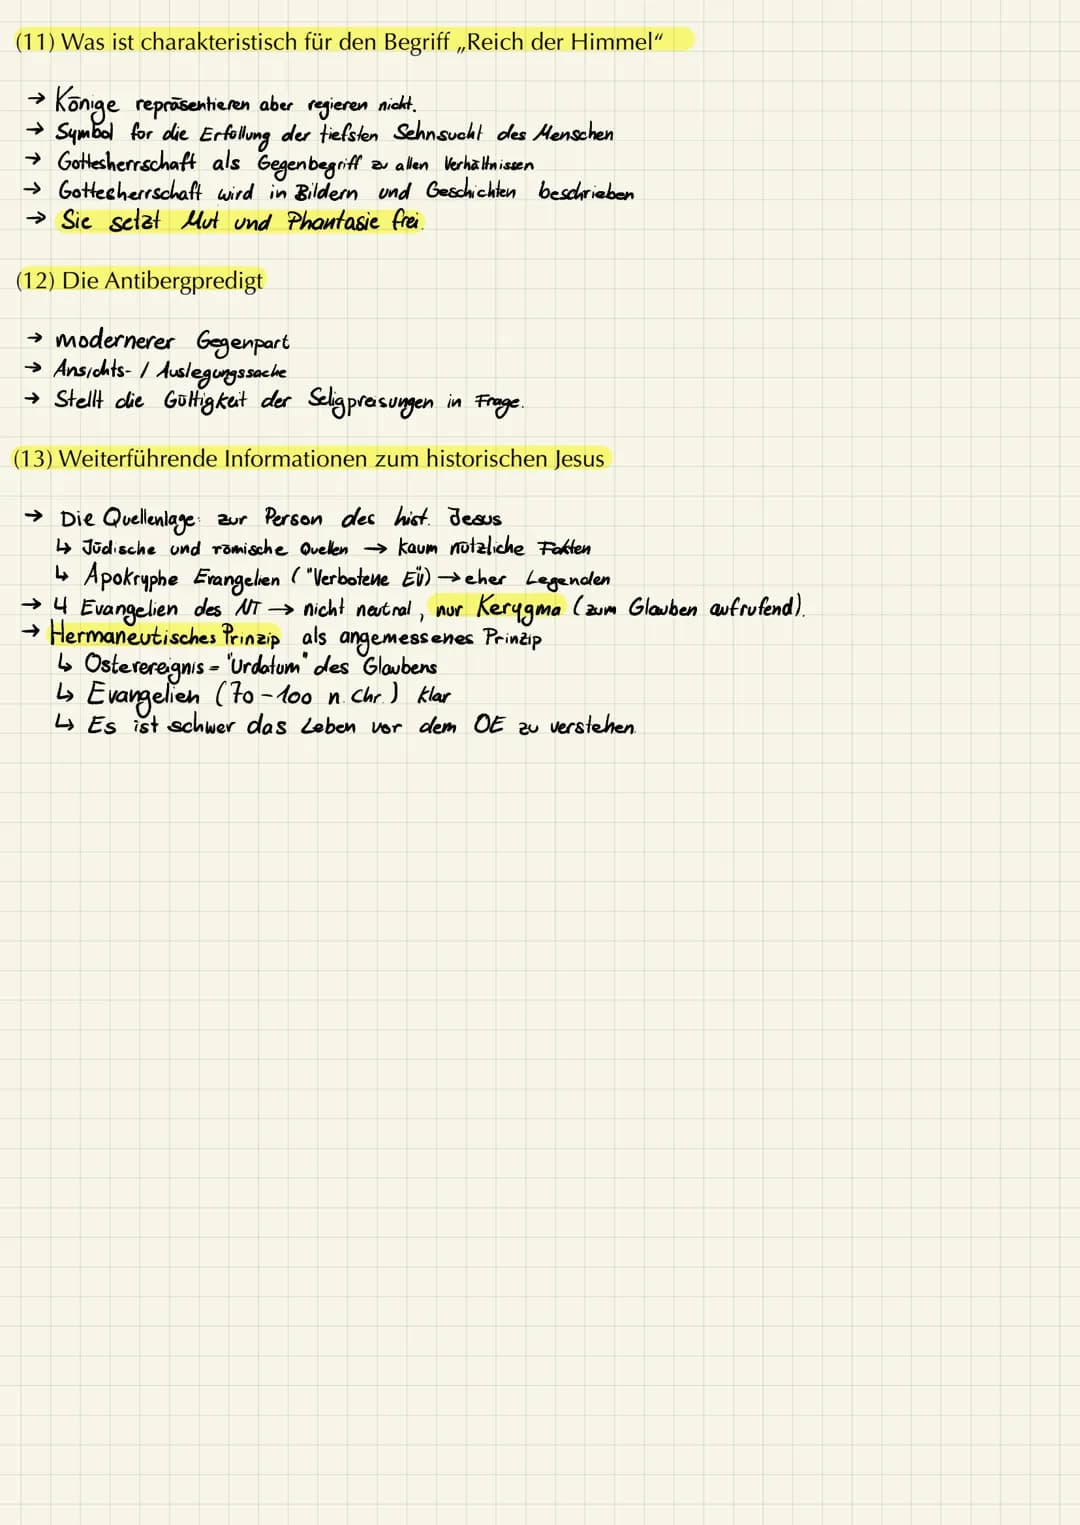 (11) Was ist charakteristisch für den Begriff „Reich der Himmel“
→ Könige repräsentieren aber regieren nicht.
→ Symbol for die Erfollung der tiefsten Sehnsucht des Menschen
→ Gottesherrschaft als Gegenbegriff zu allen Verhältnissen
→ Gottesherrschaft wird in Bildern und Geschichten beschrieben
→ Sie setzt Mut und Phantasie frei.
(12) Die Antibergpredigt
→ modernerer Gegenpart
→ Ansichts- / Auslegungssache
→ Stellt die Gültigkeit der Seligpreisungen in Frage.
(13) Weiterführende Informationen zum historischen Jesus
→ Die Quellenlage: zur Person des hist. Jesus
↳ Jüdische und römische Quellen → kaum nützliche Fakten
↳ Apokryphe Evangelien ("Verbotene EÜ) → eher Legenden
→ 4 Evangelien des NT → nicht neutral, nur Kerygma (zum Glauben aufrufend).
→ Hermaneutisches Prinzip als angemessenes Prinzip
↳ Osterereignis = "Urdatum" des Glaubens
↳ Evangelien (70-100 n. Chr.) klar
↳ Es ist schwer das Leben vor dem OE zu verstehen.